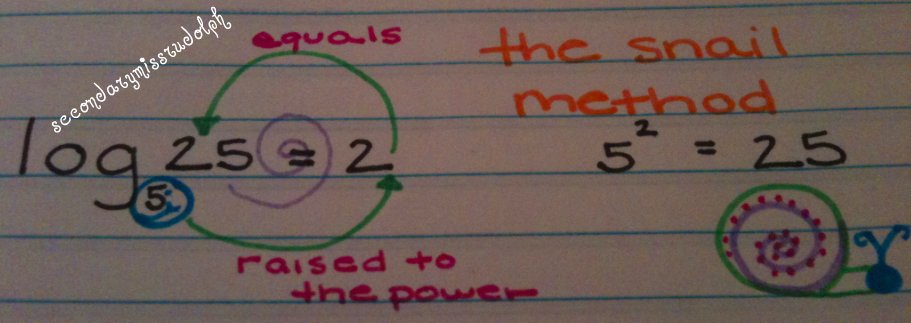 secondarymissrudolph
equals
the snail
method
log₅ 25 = 2
5² = 25
raised to
the power